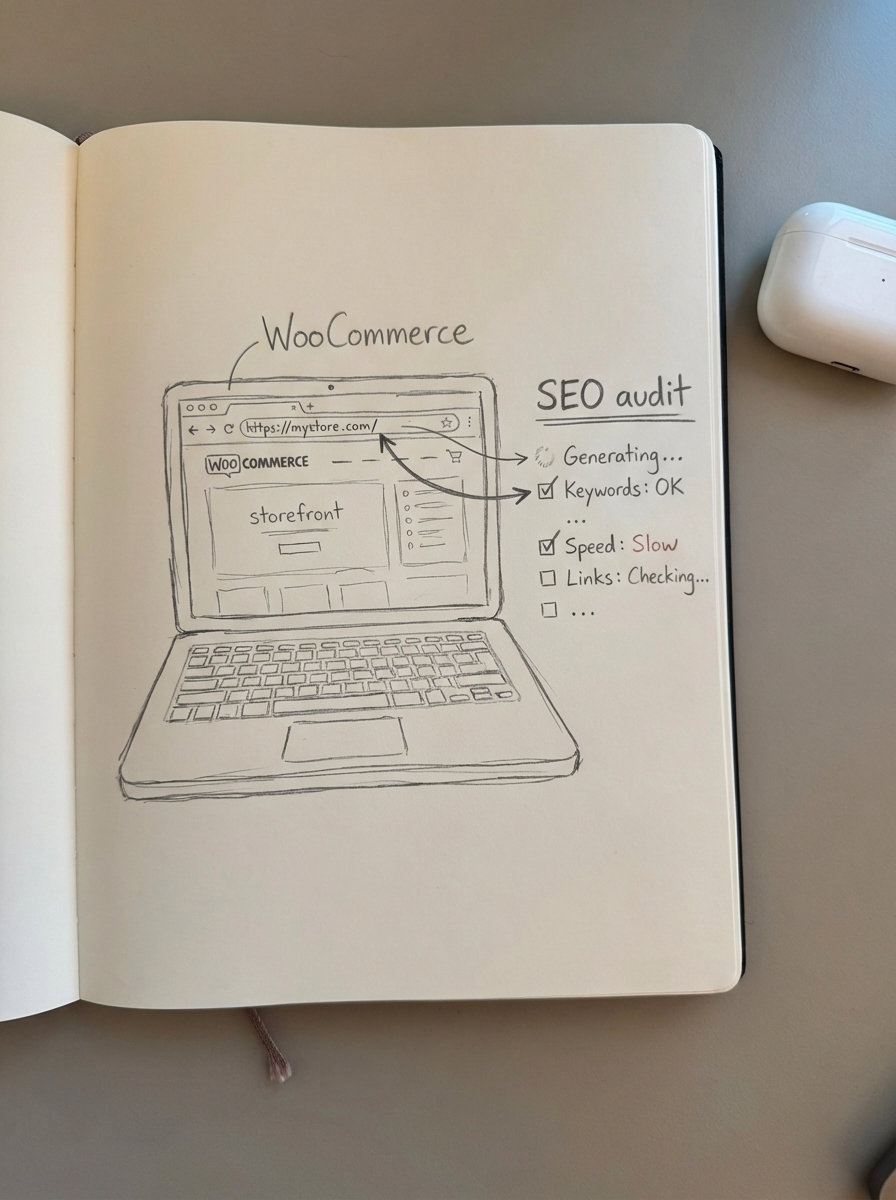 WooCommerce
https://mystore.com/
WOO COMMERCE
storefront
SEO audit
Generating...
Keywords: OK
...
Speed: Slow
Links: Checking...
...